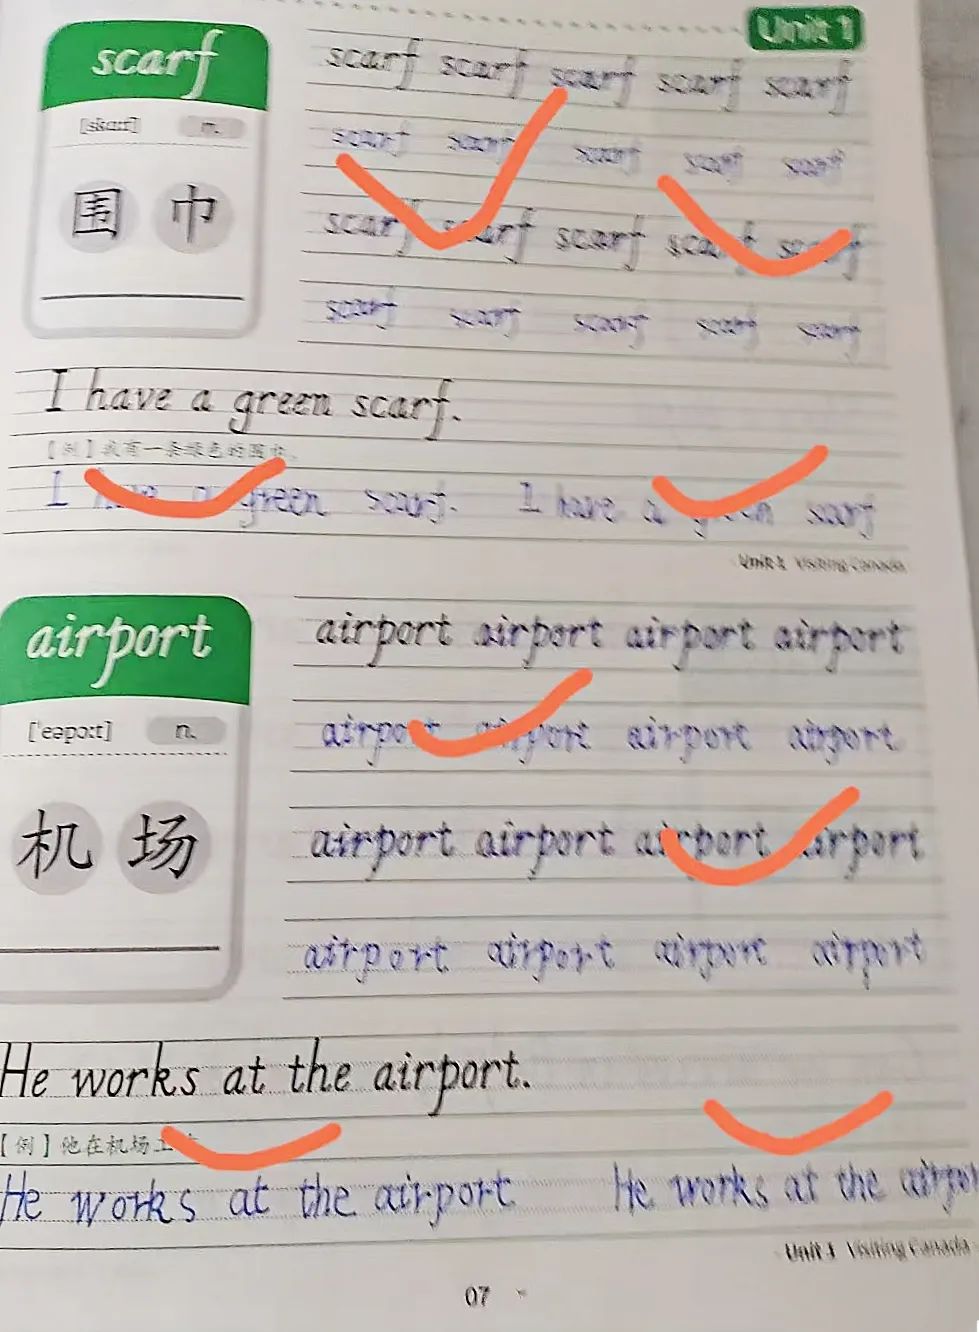 Unit 1
scarf
[skɑːf] n.
围巾
scarf scarf scarf scarf scarf
scarf scarf scarf scarf scarf
scarf scarf scarf scarf scarf
scarf scarf scarf scarf scarf
I have a green scarf.
【例】我有一条绿色的围巾。
I have a green scarf. I have a green scarf
Unit 1 Visiting Canada
airport
['eəpɔːt] n.
机场
airport airport airport airport
airport airport airport airport
airport airport airport airport
airport airport airport airport
He works at the airport.
【例】他在机场工
He works at the airport He works at the airpor
Unit 1 Visiting Canada
07